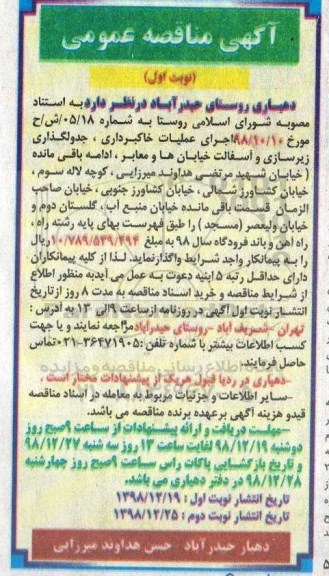 آگهی مناقصه عمومی
(نوبت اول)
دهیاری روستای حیدرآباد درنظر دارد به استناد
مصوبه شورای اسلامی روستا به شماره ۰۵/۱۸/ش/ح
مورخ ۹۸/۱۰/۱۰اجرای عملیات خاکبرداری ، جدولگذاری
زیرسازی و آسفالت خیابان ها و معابر ، ادامه باقی مانده
( خیابان شهید مرتضی هداوند میرزایی ، کوچه لاله سوم ،
خیابان کشاورز شمالی ، خیابان کشاورز جنوبی ، خیابان صاحب
الزمان قسمت باقی مانده خیابان منبع آب ، گلستان دوم و
خیابان ولیعصر (مسجد ) را طبق فهرست بهای پایه رشته راه ،
راه آهن و باند فرودگاه سال ۹۸ به مبلغ ۱۰/۷۸۹/۵۳۹/۴۹۴ریال
را به پیمانکار واجد شرایط واگذارنماید. لذا از کلیه پیمانکاران
دارای حداقل رتبه ۵ ابنیه دعوت به عمل می آیدبه منظور اطلاع
از شرایط مناقصه و خرید اسناد مناقصه به مدت ۸ روز ازتاریخ
انتشار نوبت اول آگهی در روزنامه ازساعت ۹الی ۱۳ به آدرس :
تهران -شریف آباد -روستای حیدرآبادمراجعه نمایند و یا جهت
کسب اطلاعات بیشتر با شماره تلفن :۳۶۴۷۱۹۰۵-۰۲۱تماس
حاصل فرمایند.
-دهیاری در ردیا قبول هریک از پیشنهادات مختار است .
-سایر اطلاعات و جزئیات مربوط به معامله در اسناد مناقصه
قیدو هزینه آگهی برعهده برنده مناقصه می باشد.
-مهلت دریافت و ارائه پیشنهادات از ساعت ۹صبح روز
دوشنبه ۹۸/۱۲/۱۹ لغایت ساعت ۱۳ روز سه شنبه ۹۸/۱۲/۲۷
و تاریخ بازگشایی پاکات راس ساعت ۹صبح روز چهارشنبه
۹۸/۱۲/۲۸ در دفتر دهیاری می باشد.
تاریخ انتشار نوبت اول : ۱۳۹۸/۱۲/۱۹
تاریخ انتشار نوبت دوم : ۱۳۹۸/۱۲/۲۵
دهیار حیدرآباد - حسن هداوند میرزایی